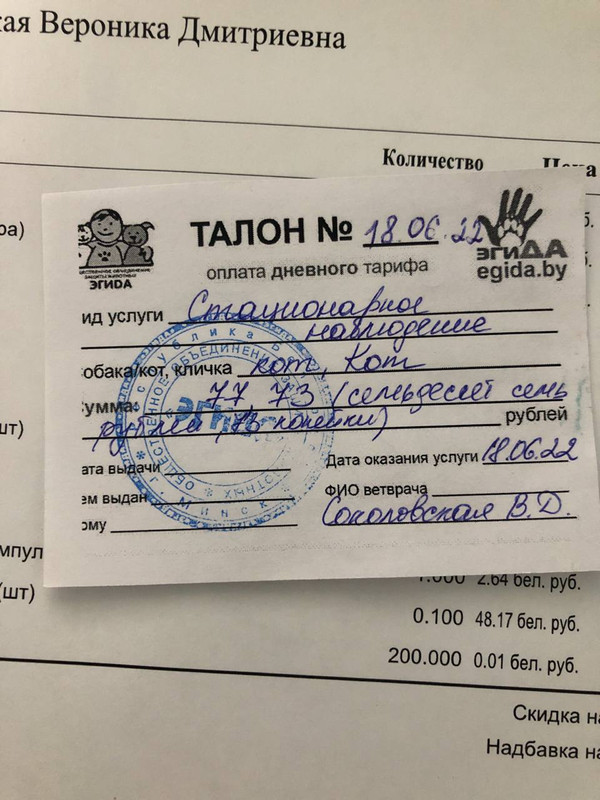 кая Вероника Дмитриевна
Количество
Цена
ра)
б.
б.
ТАЛОН № 18.06.22
ЭГИДА
egida.by
оплата дневного тарифа
ЩЕСТВЕННОЕ ОБЪЕДИНЕНИЕ
ЗАЩИТЫ ЖИВОТНЫХ
ЭГИДА
ид услуги Стационарное
наблюдение
обака/кот, кличка кот, Кот
умма: 77,73 (семьдесят семь
рублей (73 копейки) рублей
шт)
ата выдачи
Дата оказания услуги 18.06.22
ем выдан
ФИО ветврача
ому
Соколовская В.Д.
мпул
(шт)
1.000 2.64 бел. руб.
0.100 48.17 бел. руб.
200.000 0.01 бел. руб.
Скидка на
Надбавка на